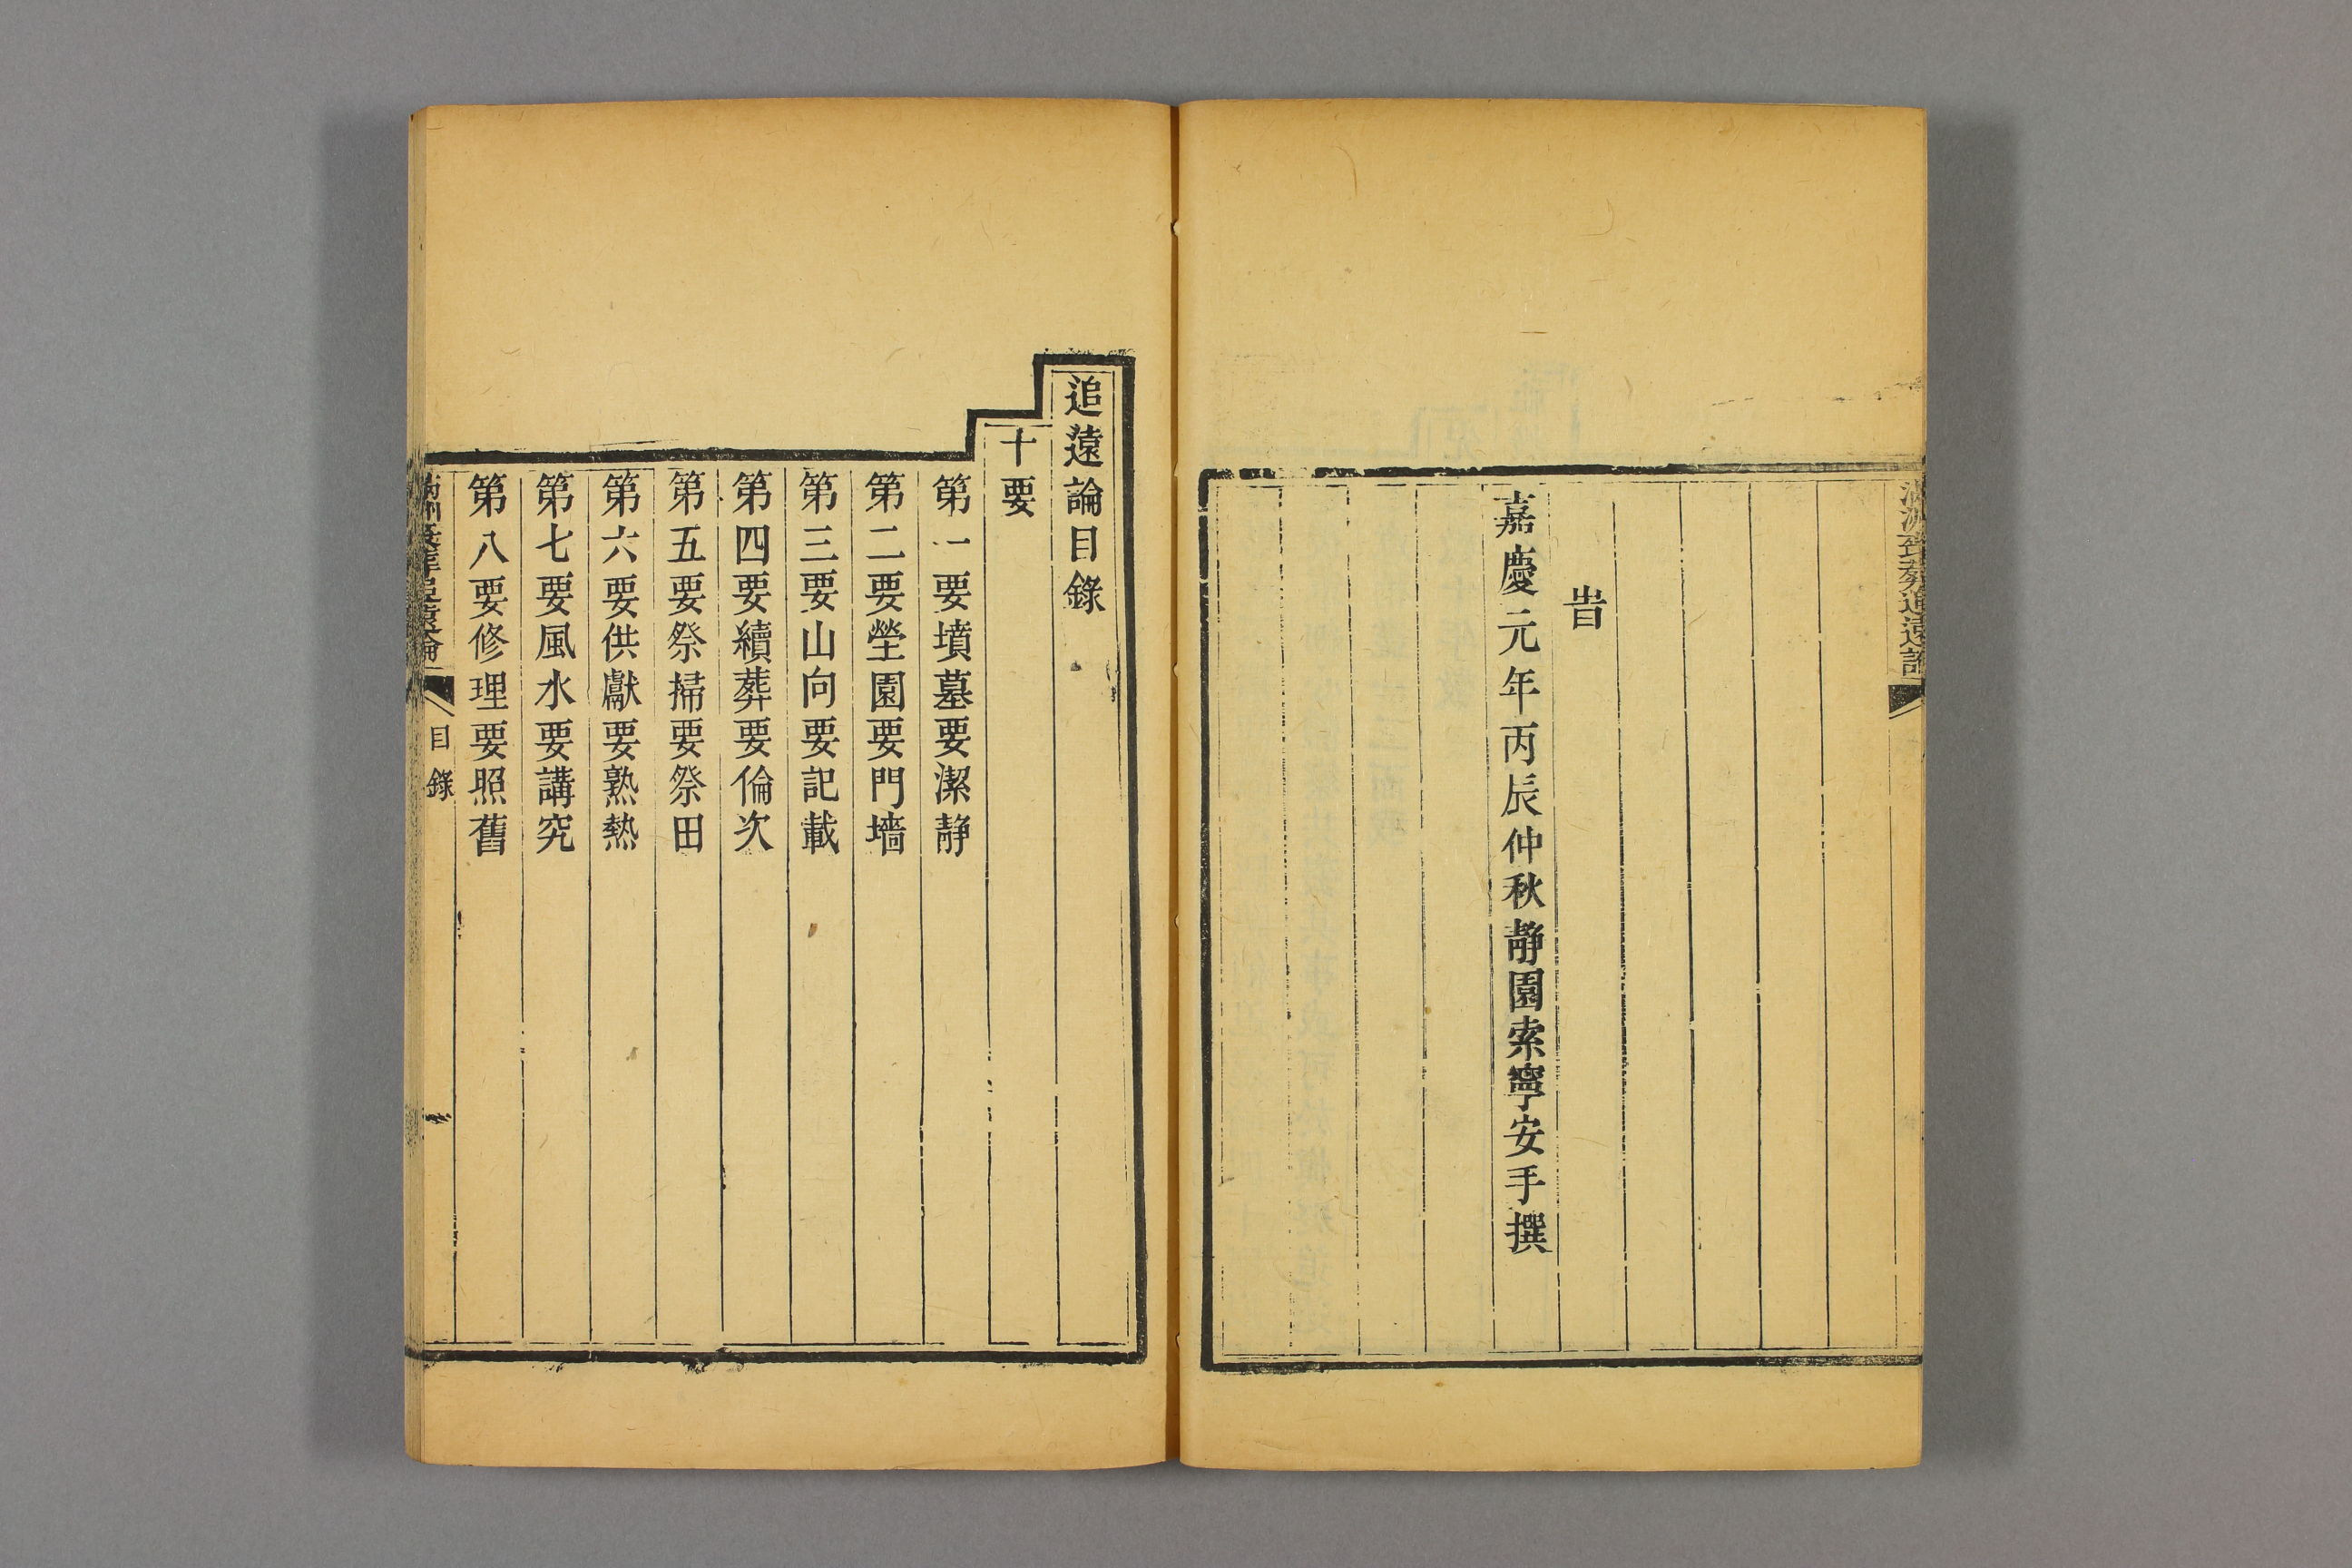 旹
嘉慶元年丙辰仲秋靜園索寧安手撰
追遠論目錄
十要
第一要墳墓要潔靜
第二要塋園要門墻
第三要山向要記載
第四要續葬要倫次
第五要祭掃要祭田
第六要供獻要熟熱
第七要風水要講究
第八要修理要照舊
目錄